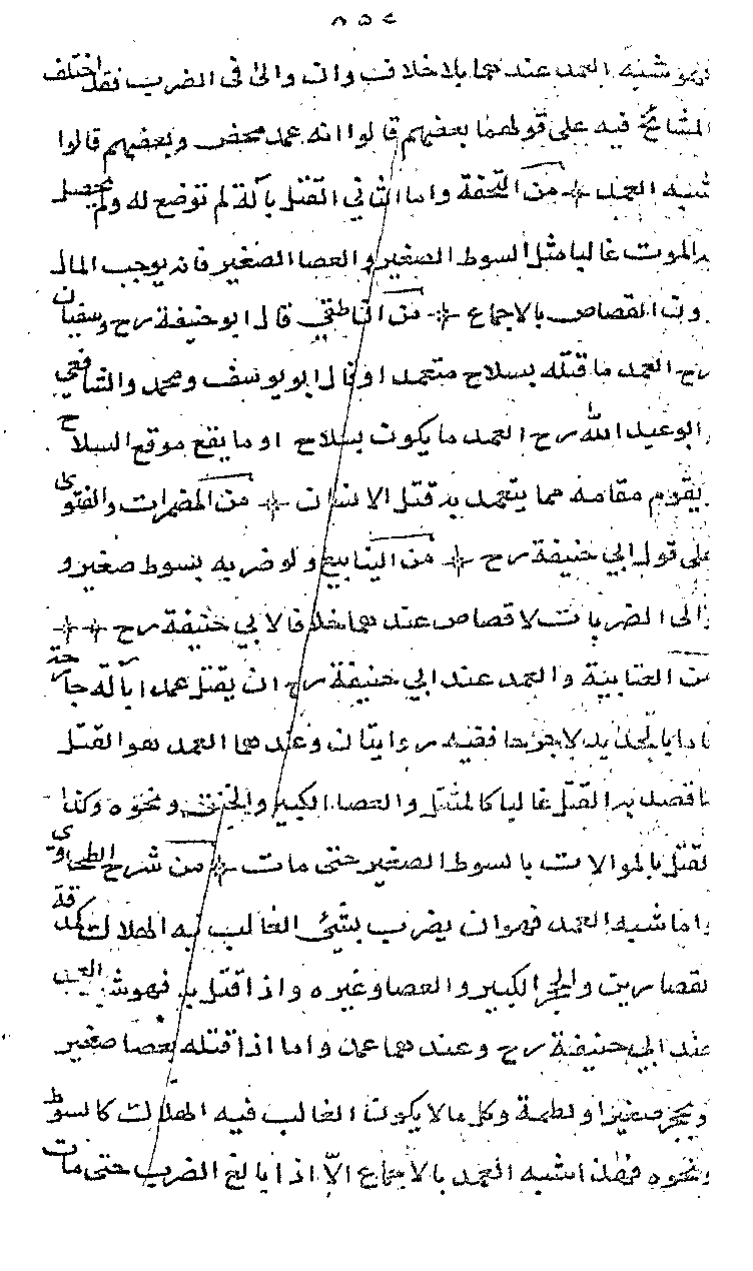 ٨٥٤
فهو شبه العمد عندهما بلاخلاف وان والى فى الضرب فقد اختلف
المشائخ فيه على قولهما بعضهم قالوا انه عمد محض وبعضهم قالوا
شبه العمد من التحفة واما الثاني القتل بآلة لم توضع له ولم يحصل
به الموت غالبا مثل السوط الصغير والعصا الصغير فانه يوجب المال
دون القصاص بالاجماع من الناطقي قال ابوحنيفة رح وسفيان
رح العمد ما قتله بسلاح متعمدا وقال ابويوسف ومحمد والشافعي
وابوعبيد الله رح العمد ما يكون بسلاح او ما يقع موقع السلاح
ويقوم مقامه مما يتعمد به قتل الانسان من المضمرات والفتوى
على قول ابي حنيفة رح من الينابيع ولو ضربه بسوط صغير و
والى الضربات لا قصاص عندهما خلافا لابي حنيفة رح
من العتابية والعمد عند ابي حنيفة رح ان يقتل عمدا بآلة جارحة
فاما بالحديد لا جرحا ففيه روايتان وعندهما العمد هو القتل
بما قصد به القتل غالبا كالمثقل والعصا الكبير والخنق ونحوه وكذا
القتل بالموالات بالسوط الصغير حتى مات من شرح الطحاوي
واما شبه العمد فهو ان يضرب بشئ الغالب فيه الهلاك كمدقة
القصارين والحجر الكبير والعصا وغيره واذا قتل به فهو شبه العمد
عند ابي حنيفة رح وعندهما عمد واما اذا قتله بعصا صغير
وبحجر صغير او لطمة وكل ما لا يكون الغالب فيه الهلاك كالسوط
ونحوه فهذا شبه العمد بالاجماع الّا اذا بالغ الضرب حتى مات